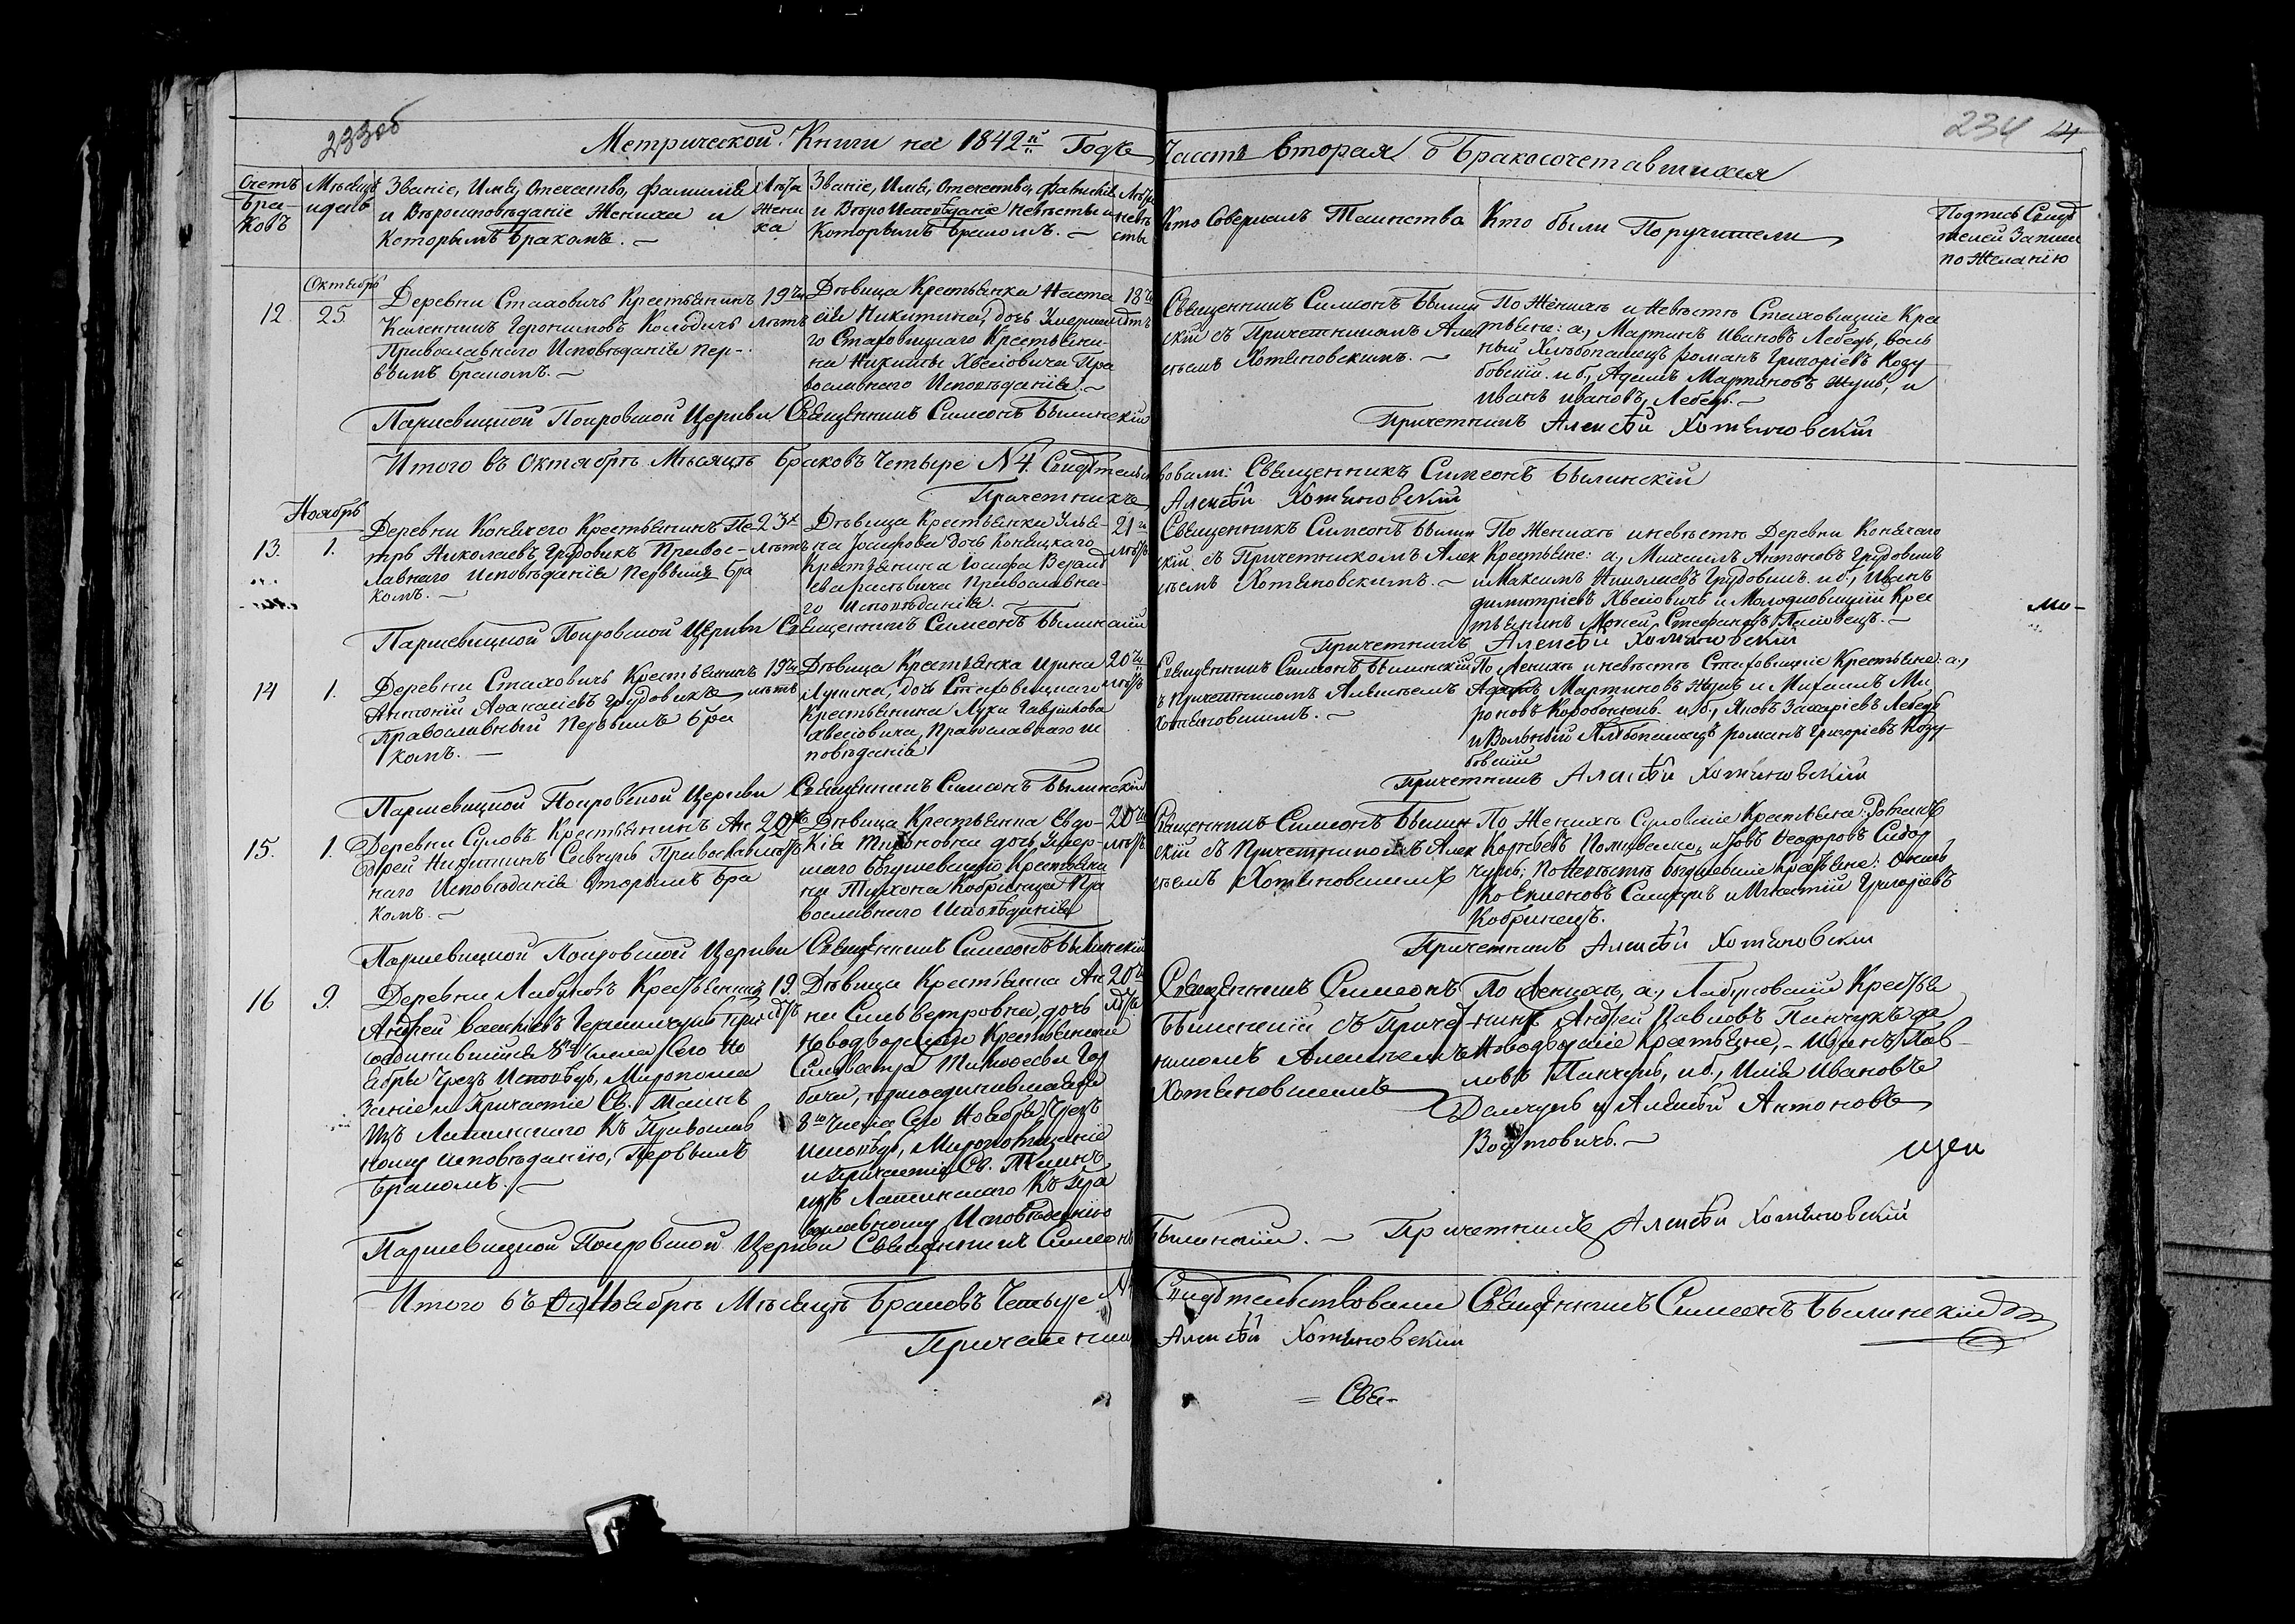 233об
234
Метрической Книги на 1842й Годъ Часть вторая о бракосочетавшихся
Счетъ браковъ
Мѣсяцъ и день
Званіе, Имя, Отечество, Фамилія
и Вѣроисповѣданіе Жениха и
Которымъ бракомъ. —
Лѣта Жениха
Званіе, Имя, Отечество, Фамилія
и Вѣроисповѣданіе Невѣсты и
Которымъ бракомъ. —
Лѣта Невѣсты
Кто Совершалъ Таинство
Кто были Поручители
Подпись Свидѣ
телей Записи
по Желанію
Октября
12
25.
Деревни Стаховичъ Крестьянинъ
Калинникъ Іеронимовъ Колодичъ
Православнаго Исповѣданія пер-
вымъ бракомъ. —
19ти
лѣтъ
Дѣвица Крестьянка Наста
сія Никитина, дочь Умерша
го Стаховицкаго Крестьяни-
на Никиты Хвесловича Пра
вославнаго Исповѣданія. —
18ти
лѣтъ
Священникъ Симеонъ Былин
скій съ Причетникомъ Алек
сѣемъ Хотяновскимъ. —
По Женихѣ и Невѣстѣ Стаховицкіе Кре
стьяне: а, Мартинъ Ивановъ Лебедь, воль
ный Хлѣбопашецъ Романъ Григоріевъ Козу
бовскій. и б, Адамъ Мартиновъ Жукъ, и
Иванъ Ивановъ Лебедь. —
Паршевицкой Покровской Церкви Священникъ Симеонъ Былинскій
Причетникъ Алексѣй Хотяновскій
Итого въ Октябрѣ Мѣсяцѣ браковъ Четыре N 4. Свидѣтельствовали: Священникъ Симеонъ Былинскій
Причетникъ Алексѣй Хотяновскій
Ноябрь
13.
1.
Деревни Конячего Крестьянинъ Пе-
тръ Николаевъ Грудовикъ Право-
славнаго Исповѣданія Первымъ бра
комъ. —
23х
лѣтъ
Дѣвица Крестьянка Улья-
на Іосифова дочь Коняцкаго
Крестьянина Іосифа
Православна-
го Исповѣданія. —
21го
лѣтъ
Священникъ Симеонъ Былин
скій съ Причетникомъ Алек
сѣемъ Хотяновскимъ. —
По Женихѣ и невѣстѣ Деревни Конячаго
Крестьяне: а, Михаилъ Антоновъ Грудовикъ
и Максимъ Николаевъ Грудовикъ. и б, Иванъ
Димитріевъ Хвесловичъ и Крес
тьянинъ Стефановъ
Паршевицкой Покровской Церкви Священникъ Симеонъ Былинскій
Причетникъ Алексѣй Хотяновскій
14
1.
Деревни Стаховичъ Крестьянинъ
Антоній Аѳанасіевъ Грудовикъ
Православный Первымъ бра
комъ. —
19ти
лѣтъ
Дѣвица Крестьянка Ирина
Лукина, дочь Стаховицкаго
Крестьянина Луки Гавриілова
Хвесловича, Православнаго Ис
повѣданія
20ти
лѣтъ
Священникъ Симеонъ Былинскій
съ Причетникомъ Алексѣемъ
Хотяновскимъ. —
По Женихѣ и невѣстѣ Стаховицкіе Крестьяне: а,
Адамъ Мартиновъ Жукъ и Михаилъ Ми
роновъ Коробанюкъ. и б, Яковъ Захаріевъ Лебедь
и Вольный Хлѣбопашецъ Романъ Григоріевъ Козу-
бовскій
Паршевицкой Покровской Церкви Священникъ Симеонъ Былинскій
Причетникъ Алексѣй Хотяновскій
15.
1.
Деревни Сушовъ Крестьянинъ Ан
дрей Никитинъ Савчукъ Православ
наго Исповѣданія вторымъ бра
комъ. —
лѣтъ
Дѣвица Крестьянка Евдо-
кія Тихоновна дочь Умер-
шаго Крестьяни
на Тихона Кобринца Пра
вославнаго Исповѣданія
20ти
лѣтъ
Священникъ Симеонъ Былин
скій съ Причетникомъ Алек
сѣемъ Хотяновскимъ
По Женихѣ Крестьяне:
и Іовъ Ѳеодоровъ Сидор
чукъ, По Невѣстѣ Крестьяне:
и Григоріевъ
Кобринецъ.
Паршевицкой Покровской Церкви Священникъ Симеонъ Былинскій
Причетникъ Алексѣй Хотяновскій
16
9.
Деревни Крестьянинъ
Андрей Васильевъ При
соединившійся 8го Числа Сего Но
ября Чрезъ Исповѣдь, Миропома
заніе и Причастіе Св. Таинъ
Изъ Латинскаго Къ Православ
ному исповѣданію, Первымъ
бракомъ. —
19.
лѣтъ
Дѣвица Крестьянка Ан
на Сильвестровна, дочь
Новодворскаго Крестьянина
Сильвестра Тимоѳеева Гор
бача, присоединившаяся
8го Числа Сего Ноября, Чрезъ
Исповѣдь, Миропомазаніе
и Причастіе Св. Таинъ
изъ Латинскаго Къ Пра
вославному Исповѣданію
20ти
лѣтъ
Священникъ Симеонъ
Былинскій съ Причет
никомъ Алексѣемъ
Хотяновскимъ
По Женихѣ, а, Крестья
нинъ Андрей Павловъ Панчукъ да
Новодворскіе Крестьяне, — Иванъ Пав-
ловъ Панчукъ, и б, Илія Ивановъ
и Алексѣй Антоновъ
Войтовичъ. —
Паршевицкой Покровской Церкви Священникъ Симеонъ Былинскій. — Причетникъ Алексѣй Хотяновскій
Итого въ Ноябрѣ Мѣсяцѣ браковъ Четыре N Свидѣтельствовали Священникъ Симеонъ Былинскій
Причетникъ Алексѣй Хотяновскій
= Свя-